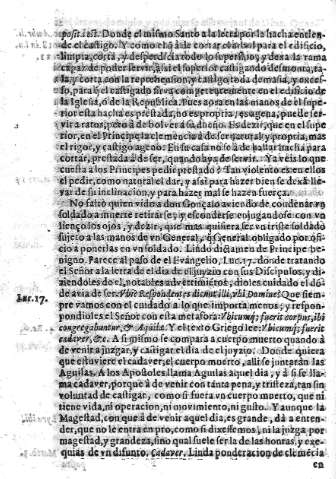 posita est. Donde el mismo Santo a la letra por la hacha entien-
de el castigo. Y como ella à de cortar el arbol para el edificio,
limpia, corta, y desperdicia todo lo superfluo, y dexa la rama
capaz de poder servir, assi el superior castigando desmonta, ta-
la, y corta con la reprehension, y castigo toda demasia, y exces-
so, para q̃ el castigado sirva competentemente en el edificio de
la Iglesia, ò de la Republica. Pues aora en las manos de el supe-
rior esta hacha es prestada, no es propria, es agena, puede ser-
vir a ratos, pero à de bolver a su dueño. Es dezir, que en el supe-
rior, en el Principe la clemẽcia à de ser natural y propria, mas
el rigor, y castigo ageno: En su casa no se à de hallar hacha para
cortar, prestada à de ser, quando aya de servir. Ya vèis lo que
cuesta a los Principes pedir prestado? Tan violento es en ellos
el pedir, como natural el dar, y assi para hazer bien se dexã lle-
var de su inclinacion, y para hazer mal se hazen fuerça.
No faltò quien vido a don Gonçalo aviendo de condenar vn
soldado a muerte retirarse, y esconderse enjugandose con vn
lienço los ojos, y dezir, que mas quisiera ser vn triste soldado
sujeto a las manos de vn General, q̃ ser General obligado por ofi-
cio a ponerlas en vn soldado. Lindo digamen de Principe be-
nigno. Parece al paso de el Evangelio, Luc. 17. donde tratando
el Señor a la letra de el dia de el juyzio con sus Discipulos, y di-
ziendoles de el, notables advertimientos, dioles cuidado el dõ-
de avia de ser. Respondentes dicunt illi, vbi Domine? Que siem-
pre vamos con el cuidado a lo que importa menos; y respon-
diolles el Señor con esta metafora: Vbicumq; fuerit corpus, ibi
congregabuntur, & Aquilæ. Y el texto Griego lee: Vbicumq; fuerit
cadaver, &c. A si mismo se compara a cuerpo muerto quando à
de venir a juzgar, y castigar el dia de el juyzio: Donde quiera
que estuviere el cadaver, el cuerpo muerto, alli se juntarán las
Aguilas. A los Apostoles llama Aguilas aquel dia, y à si se lla-
ma cadaver, porque à de venir con tanta pena, y tristeza, tan sin
voluntad de castigar, como si fuera vn cuerpo muerto, que ni
tiene vida, ni operacion, ni movimiento, ni gusto. Y aunque la
Magestad, con que à de venir aquel dia, es grande, dà a enten-
der, que no le entra en pro, como si dixessemos, ni la juzga por
magestad, y grandeza, sino qual suele ser la de las honras, y exe-
quias de vn difunto, Cadaver. Linda ponderacion de clemẽcia
en
Luc. 17.